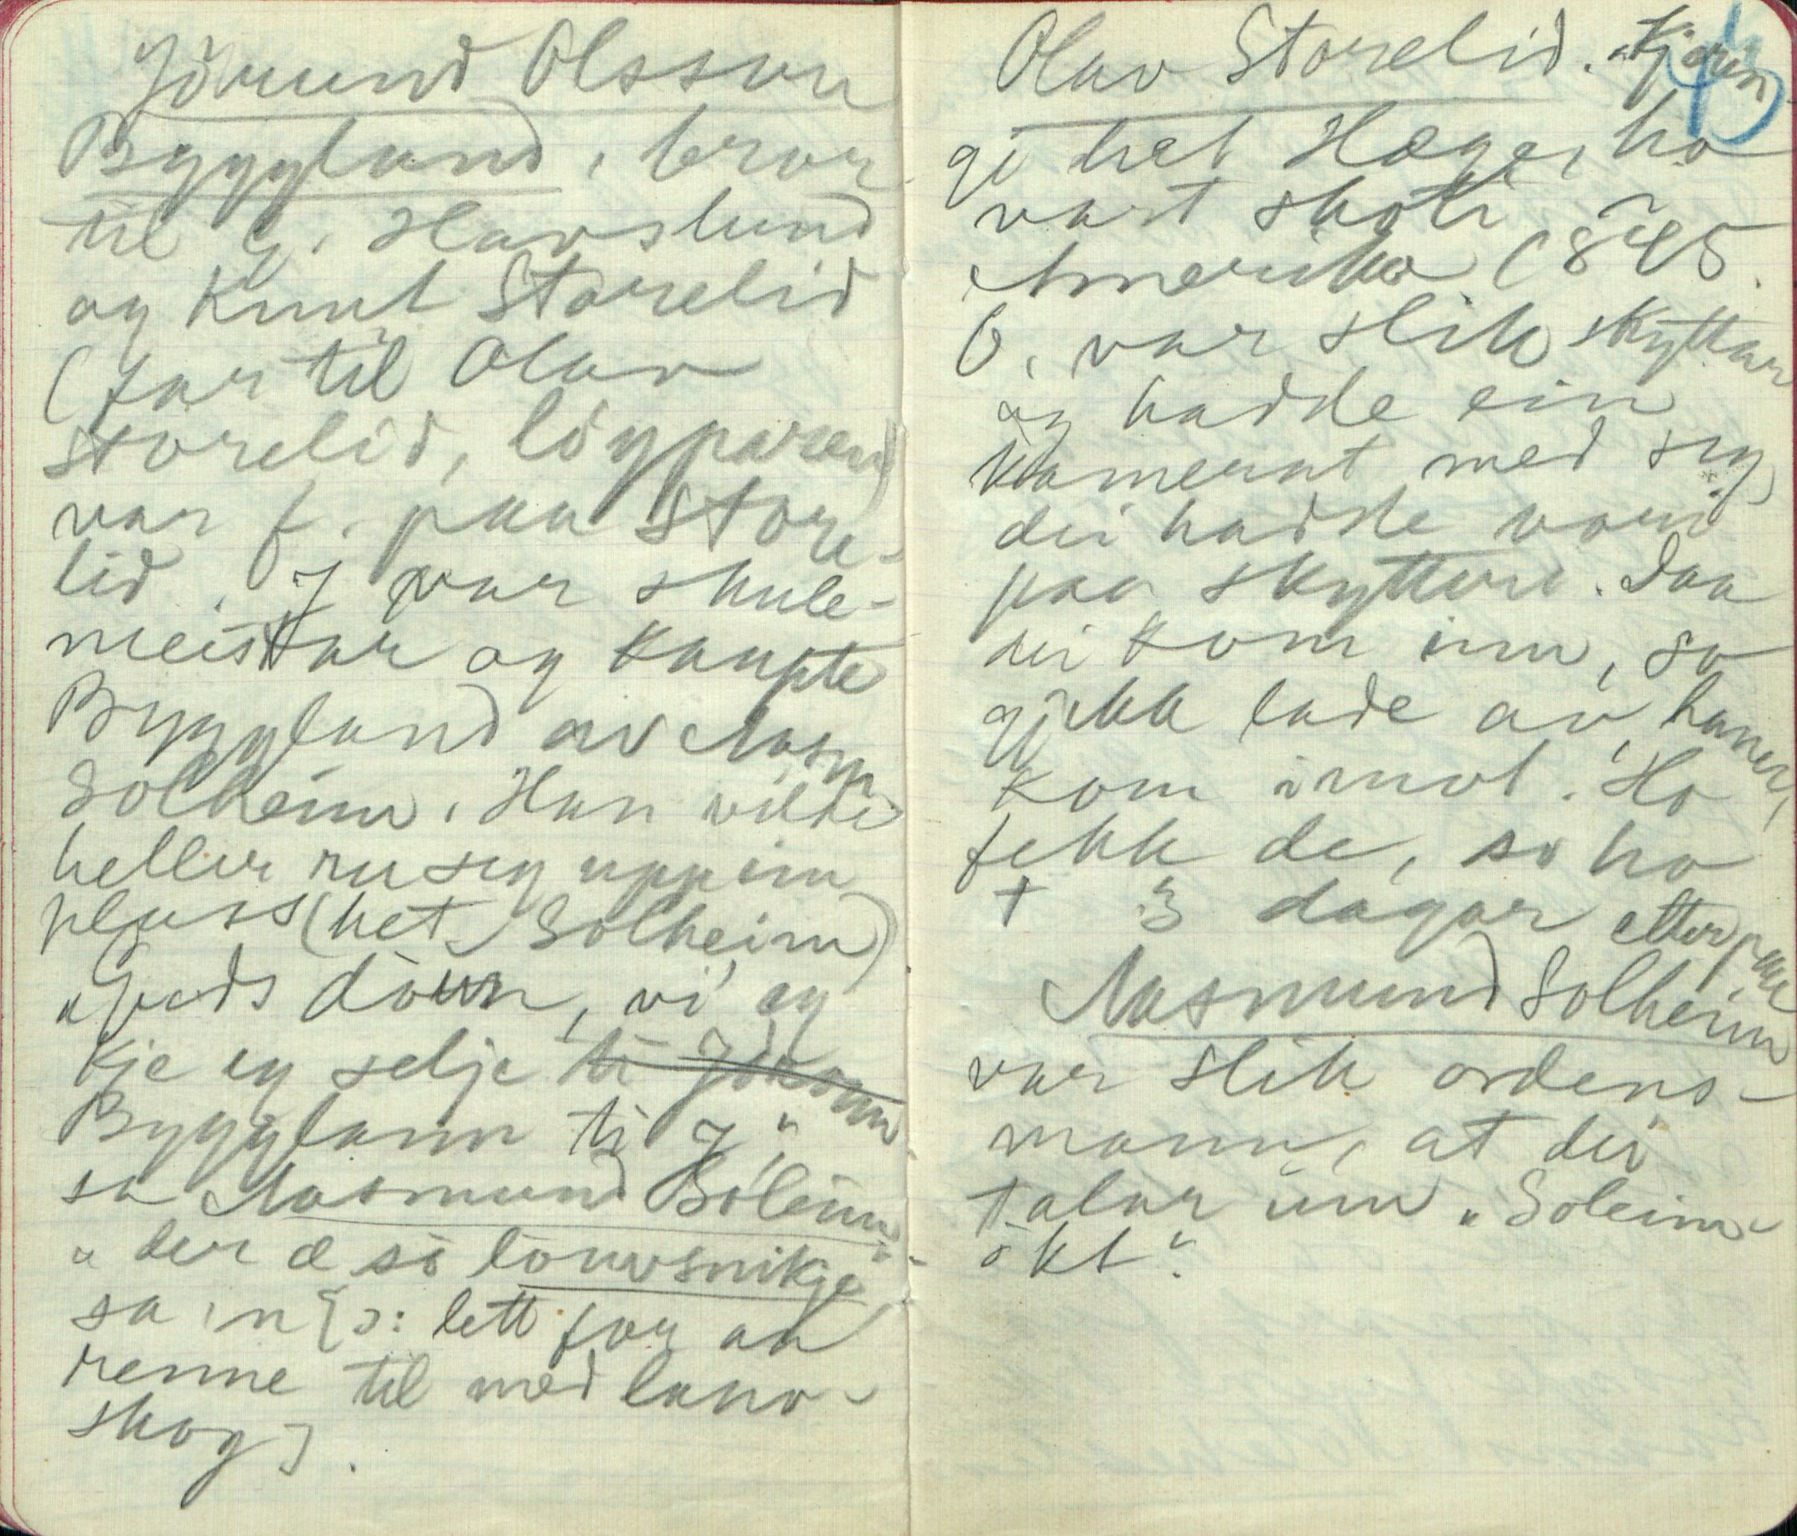 Jörund Olsson
Byggland, bror
til G. Havslund
og Knut Storelid
(far til Olav
Storelid, löygparen)
var f. paa Store-
lid. J var skule-
meistar og kaupte
Byggland av Aasm.
Solheim. Han vilde
heller ru seg upp ein
plass (het Solheim)
"Guds döun, vi' eg
kje eg selje ti Jörunn
Bygglann ti J"
sa Aasmund Soleim
"der æ so lauvsnikje"
sa 'n [ɔ: lett for aa
renne til med lauv-
skog].
Olav Storelid. "Kjærin
gi het Hæge, ho
vart skoti
Amerika 1845.
O. var slik skyttar
og hadde ein
kamerat med seg
dei hadde vori
paa skytteri. Daa
dei kom inn, so
gjekk lade av, haner,
kom imot. Ho
fekk de, so ho
+ 3 dagar etterpaa
Aasmund Solheim
var slik ordens-
mann, at dei
talar um "Soleims-
økt".